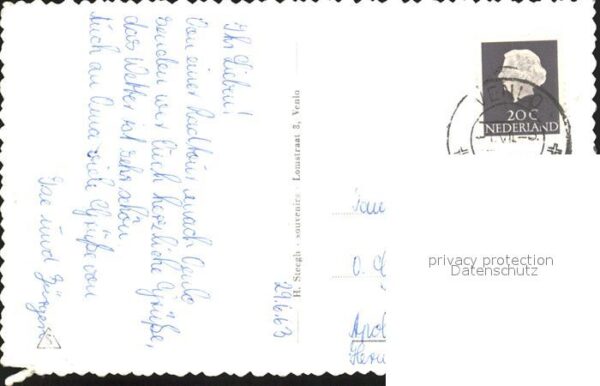 Ihr Lieben!
Von einer Radtour nach Venlo
senden wir Euch herzliche Grüße,
das Wetter ist sehr schön.
Auch an Oma viele Grüße von
Ilse und Jürgen
29.6.63
H. Steegh - souvenirs - Lomstraat 3, Venlo
20 C
NEDERLAND
VENLO
Fam
privacy protection
Datenschutz